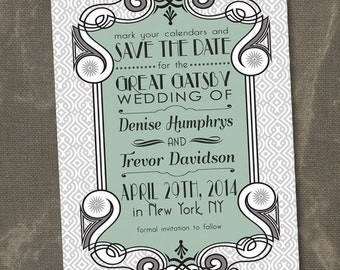 mark your calendars and
SAVE THE DATE
for the
GREAT GATSBY
WEDDING OF
Denise Humphrys
AND
Trevor Davidson
APRIL 29TH, 2014
in New York, NY
formal invitation to follow